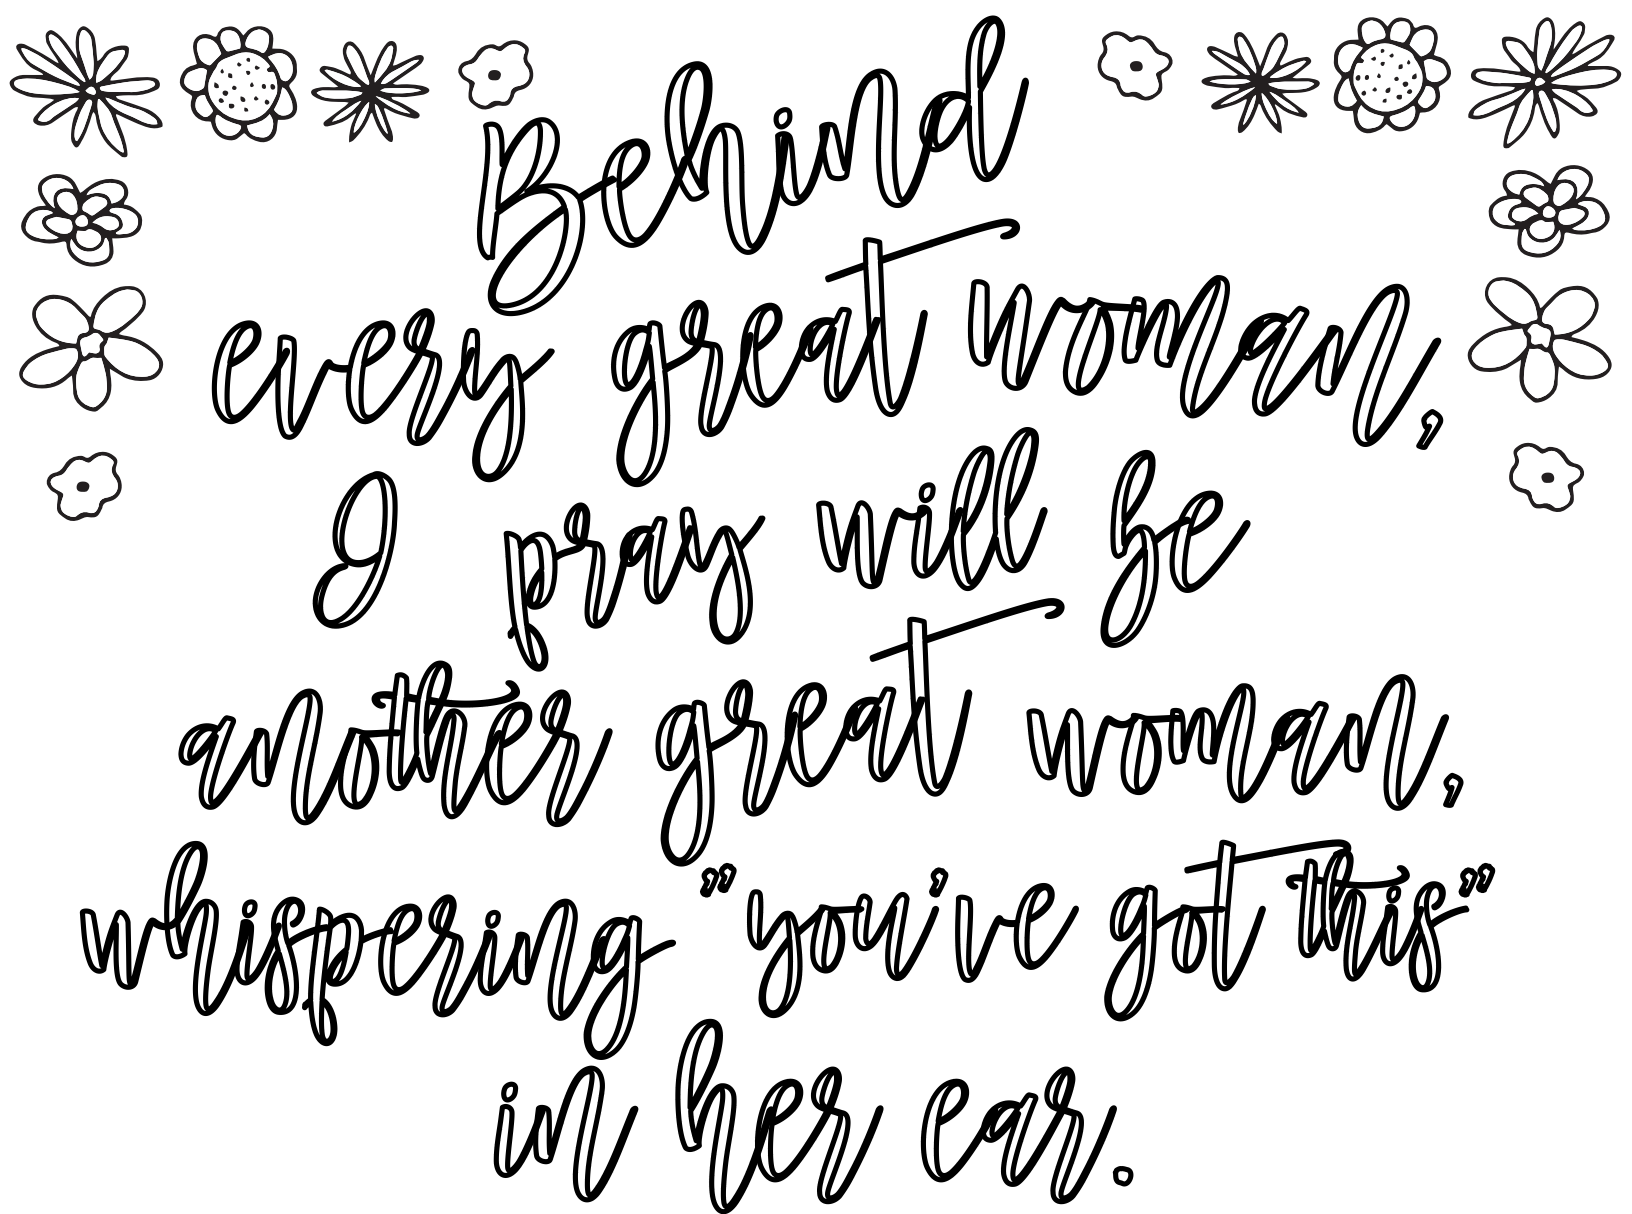 Behind
every great woman,
I pray will be
another great woman,
whispering "you've got this"
in her ear.